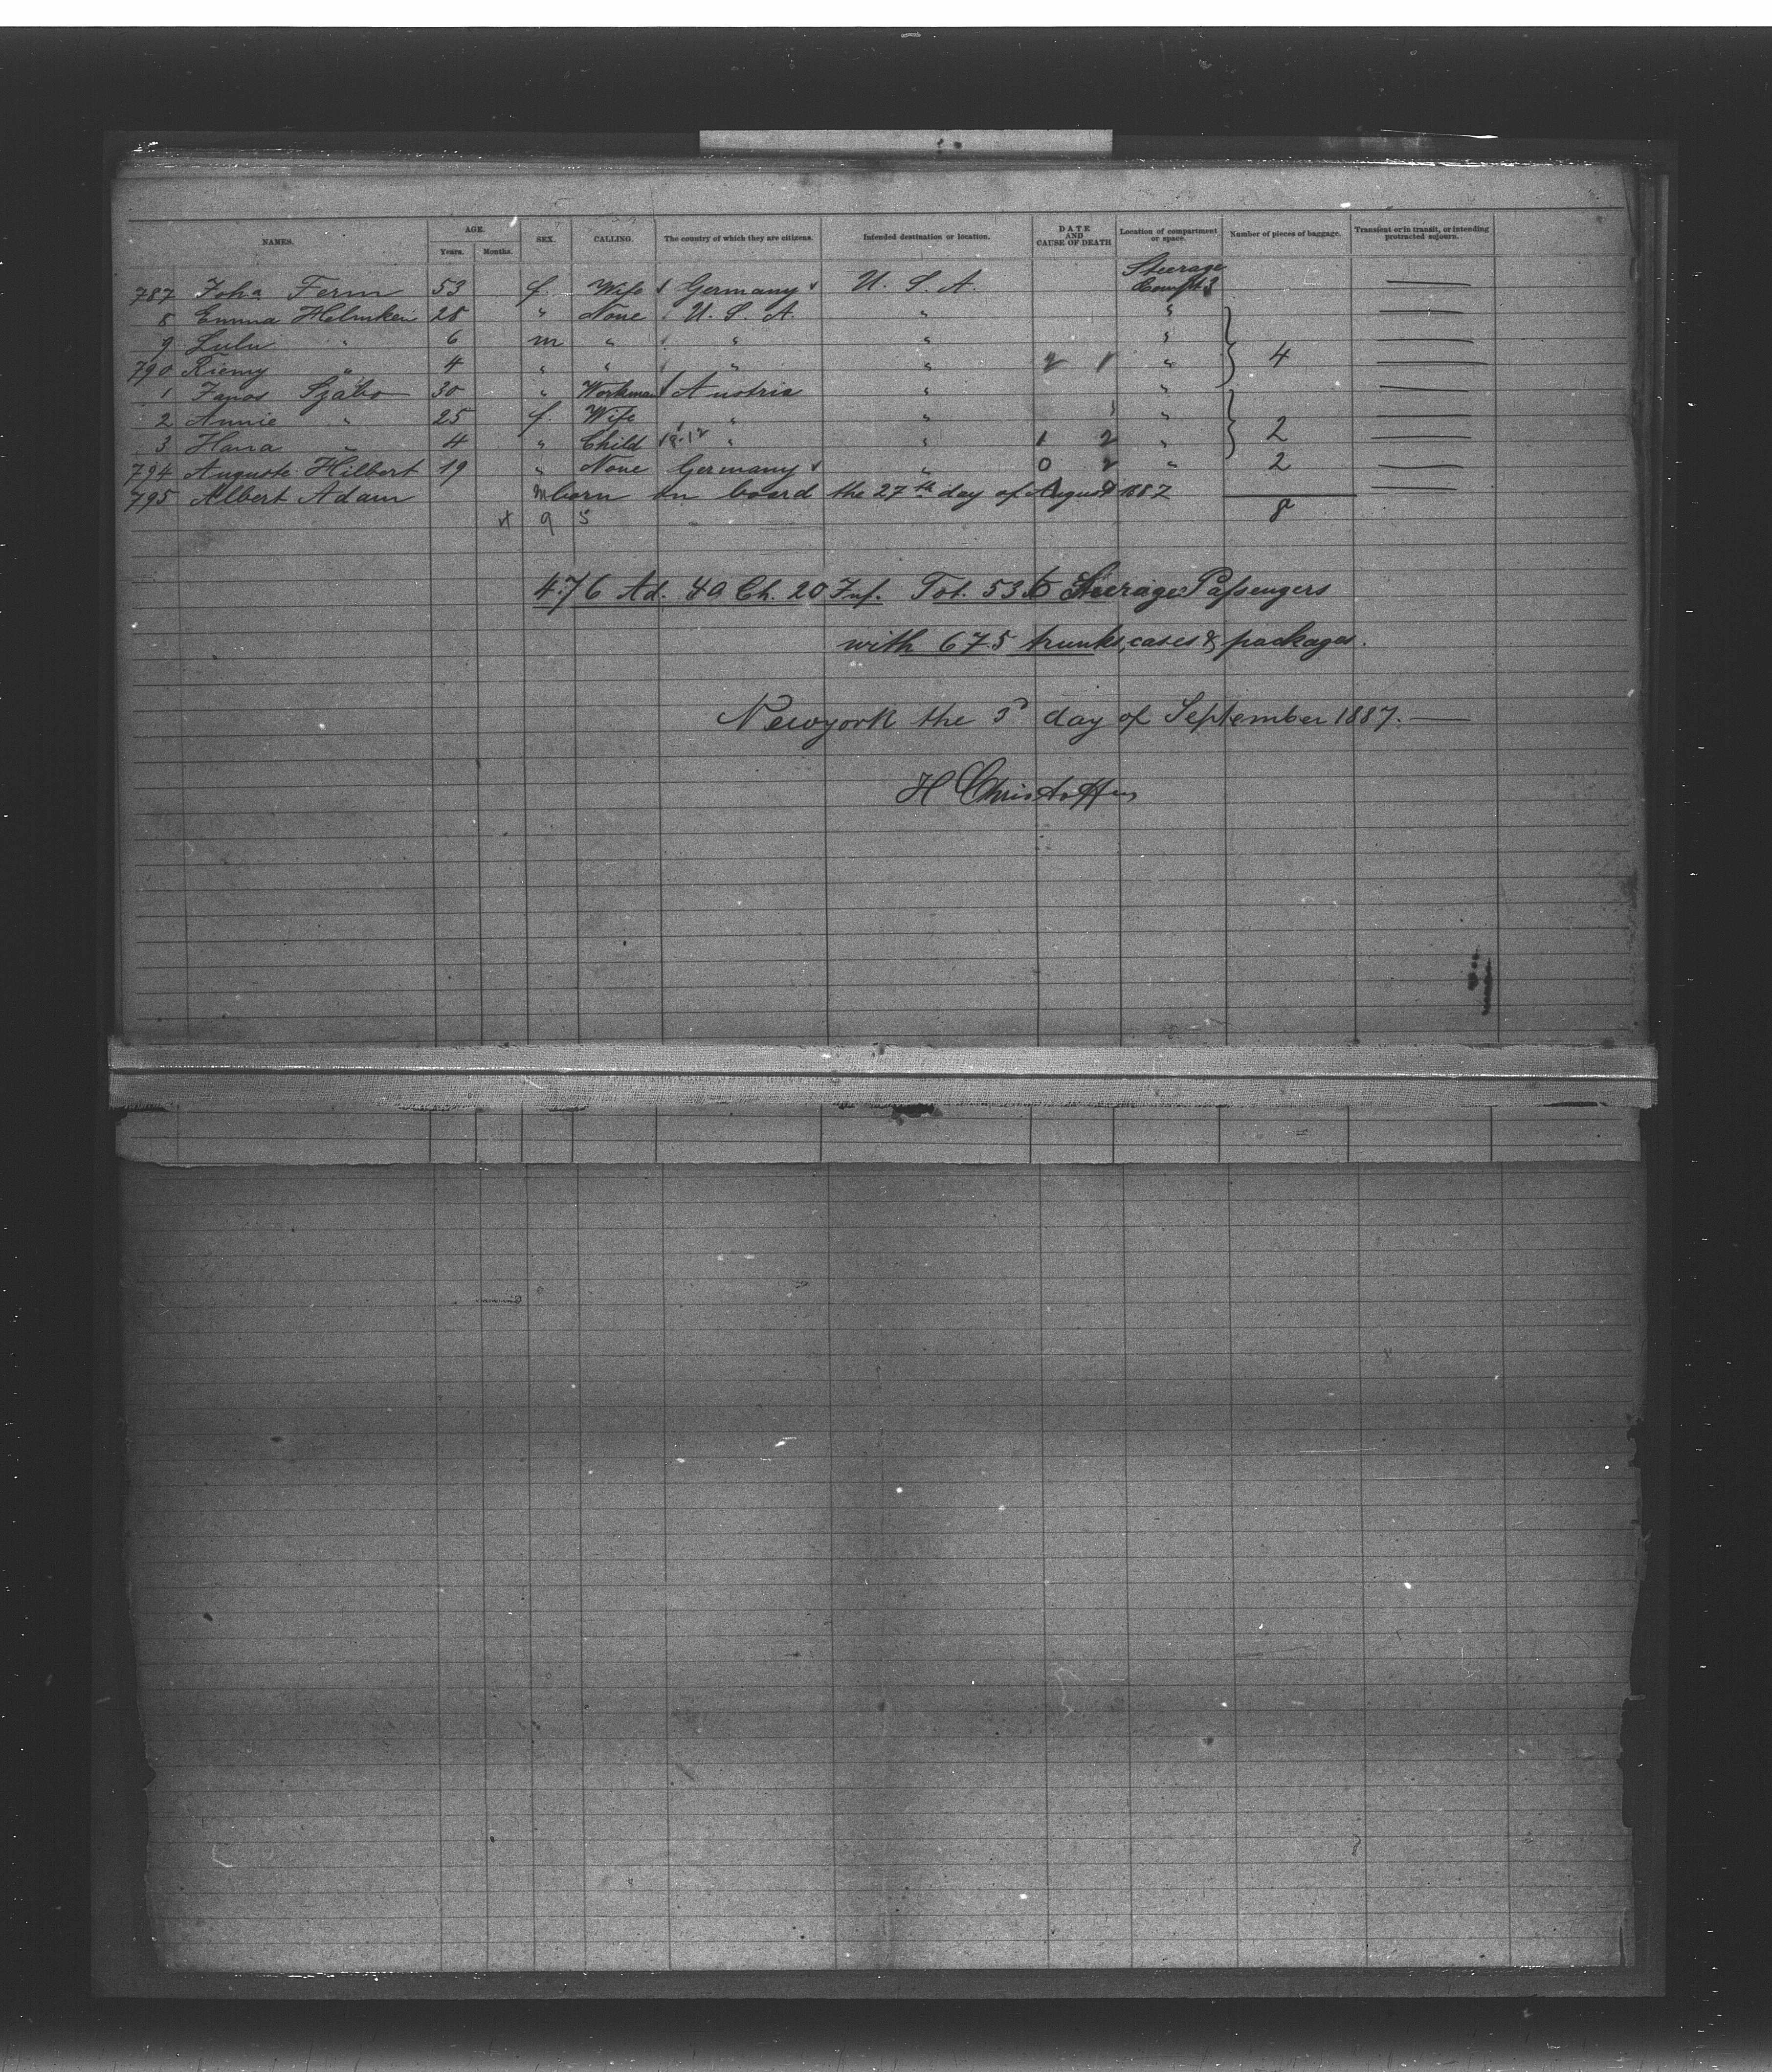 NAMES. AGE. Years. Months. SEX. CALLING. The country of which they are citizens. Intended destination or location. DATE AND CAUSE OF DEATH Location of compartment or space. Number of pieces of baggage. Transient or in transit, or intending protracted sojourn.
787 Joha Ferm 53 f. Wife Germany U. S. A. Steerage Compt 3
8 Emma Helmken 28 " None U. S. A. " "
9 Lulu " 6 m " " " "
790 Riemy " 4 " " " " 2 1 " 4
1 Janos Szabo 30 " Workman Austria " "
2 Annie " 25 f. Wife " " "
3 Hana " 4 " Child " " 1 2 " 2
794 Auguste Hilbert 19 " None Germany " 0 2 " 2
795 Albert Adam m born on board the 27th day of August 1887
9 5 8
476 Ad. 40 Ch. 20 Inf. Tot. 536 Steerage Passengers
with 675 trunks, cases & packages.
Newyork the 3d day of September 1887.
H Christoffers